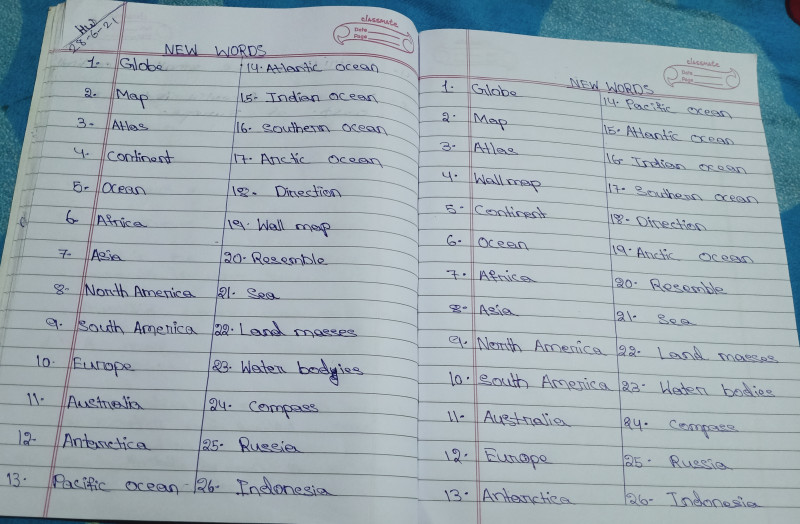 H.W
28-6-21
classmate
Date
Page
NEW WORDS
1. Globe
2. Map
3- Atlas
4. Continent
5- Ocean
6 Africa
7- Asia
8- North America
9. South America
10. Europe
11. Australia
12- Antarctica
13. Pacific ocean
14. Atlantic ocean
15- Indian ocean
16. Southern ocean
17. Arctic ocean
18. Direction
19. Wall map
20. Resemble
21. Sea
22. Land masses
23. Water bodyies
24. Compass
25- Russia
26- Indonesia
classmate
Date
Page
NEW WORDS
1. Globe
2. Map
3. Atlas
4. Wall map
5. Continent
6. Ocean
7. Africa
8- Asia
9. North America
10. South America
11- Australia
12. Europe
13. Antarctica
14. Pacific ocean
15. Atlantic ocean
16 Indian ocean
17. Southern ocean
18- Direction
19. Arctic ocean
20. Resemble
21. Sea
22. Land masses
23. Water bodies
24. Compass
25. Russia
26- Indonesia